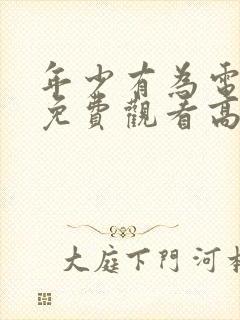 年少有為電
免費觀看高
大庭下門河